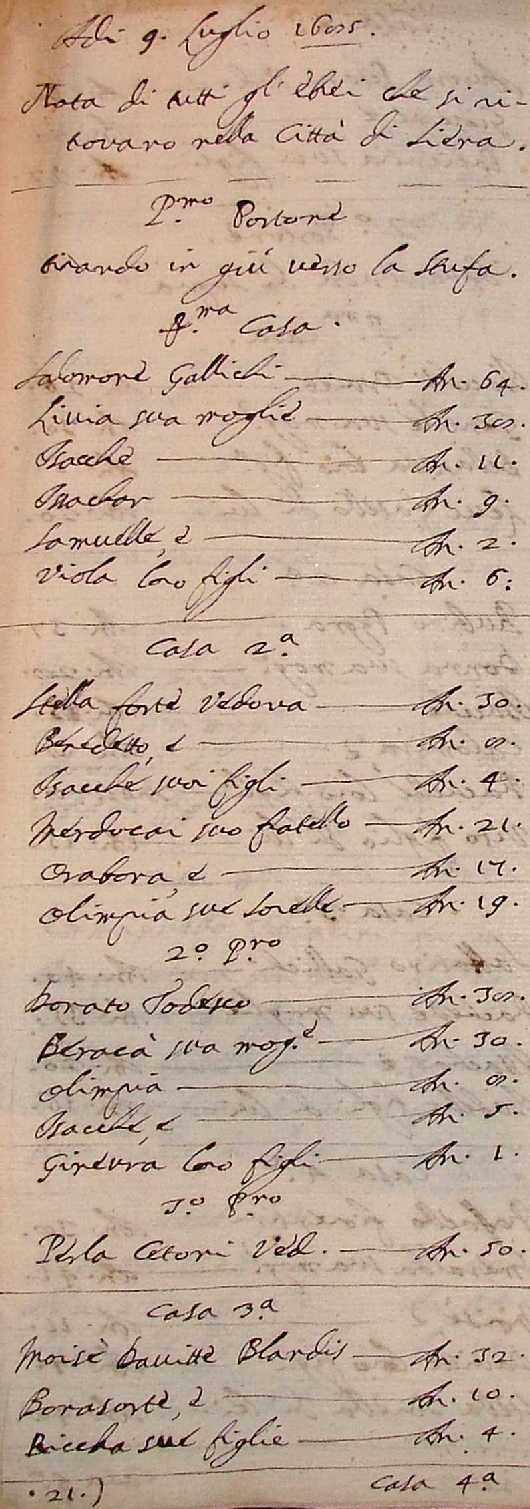 Adi 9. Luglio 1685.
Nota di tutti gl'ebrei che si ri-
trovano nella Città di Siena.
P.mo Portone
tirando in giù verso la Stufa.
P.ma Casa.
Salomone Gallichi An. 64.
Livia sua moglie An. 38.
Isacche An. 11.
Isachar An. 9.
Samuelle, e An. 2.
Viola loro figli An. 6.
Casa 2.a
Stella forte Vedova An. 30.
Benedetto, e An. 8.
Isacche suoi figli An. 4.
Merdocai suo fratello An. 21.
Orabona, e An. 17.
Olimpia, sue sorelle An. 19.
2.o P.no
Donato Todesco An. 38.
Beracà sua mog.e An. 30.
Olimpia An. 8.
Isacche, e An. 5.
Ginevra loro figli An. 1.
3.o P.no
Perla Cetoni Ved. An. 50.
Casa 3.a
Moisè Davitte Blandis An. 32.
Bonasorte, e An. 10.
Riccha sue figlie An. 4.
.21.)
Casa 4.a